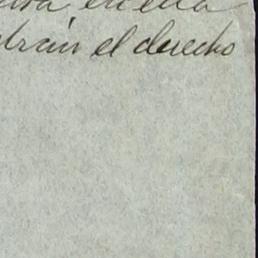 en ella
drán el derecho